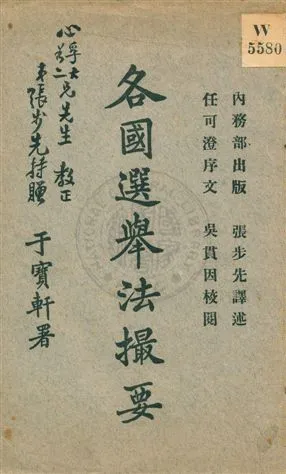 W
5580
內務部出版 張步先譯述
任可澄序文 吳貫因校閱
各國選舉法撮要
于寶軒署
二兄先生 教正
弟張步先持贈